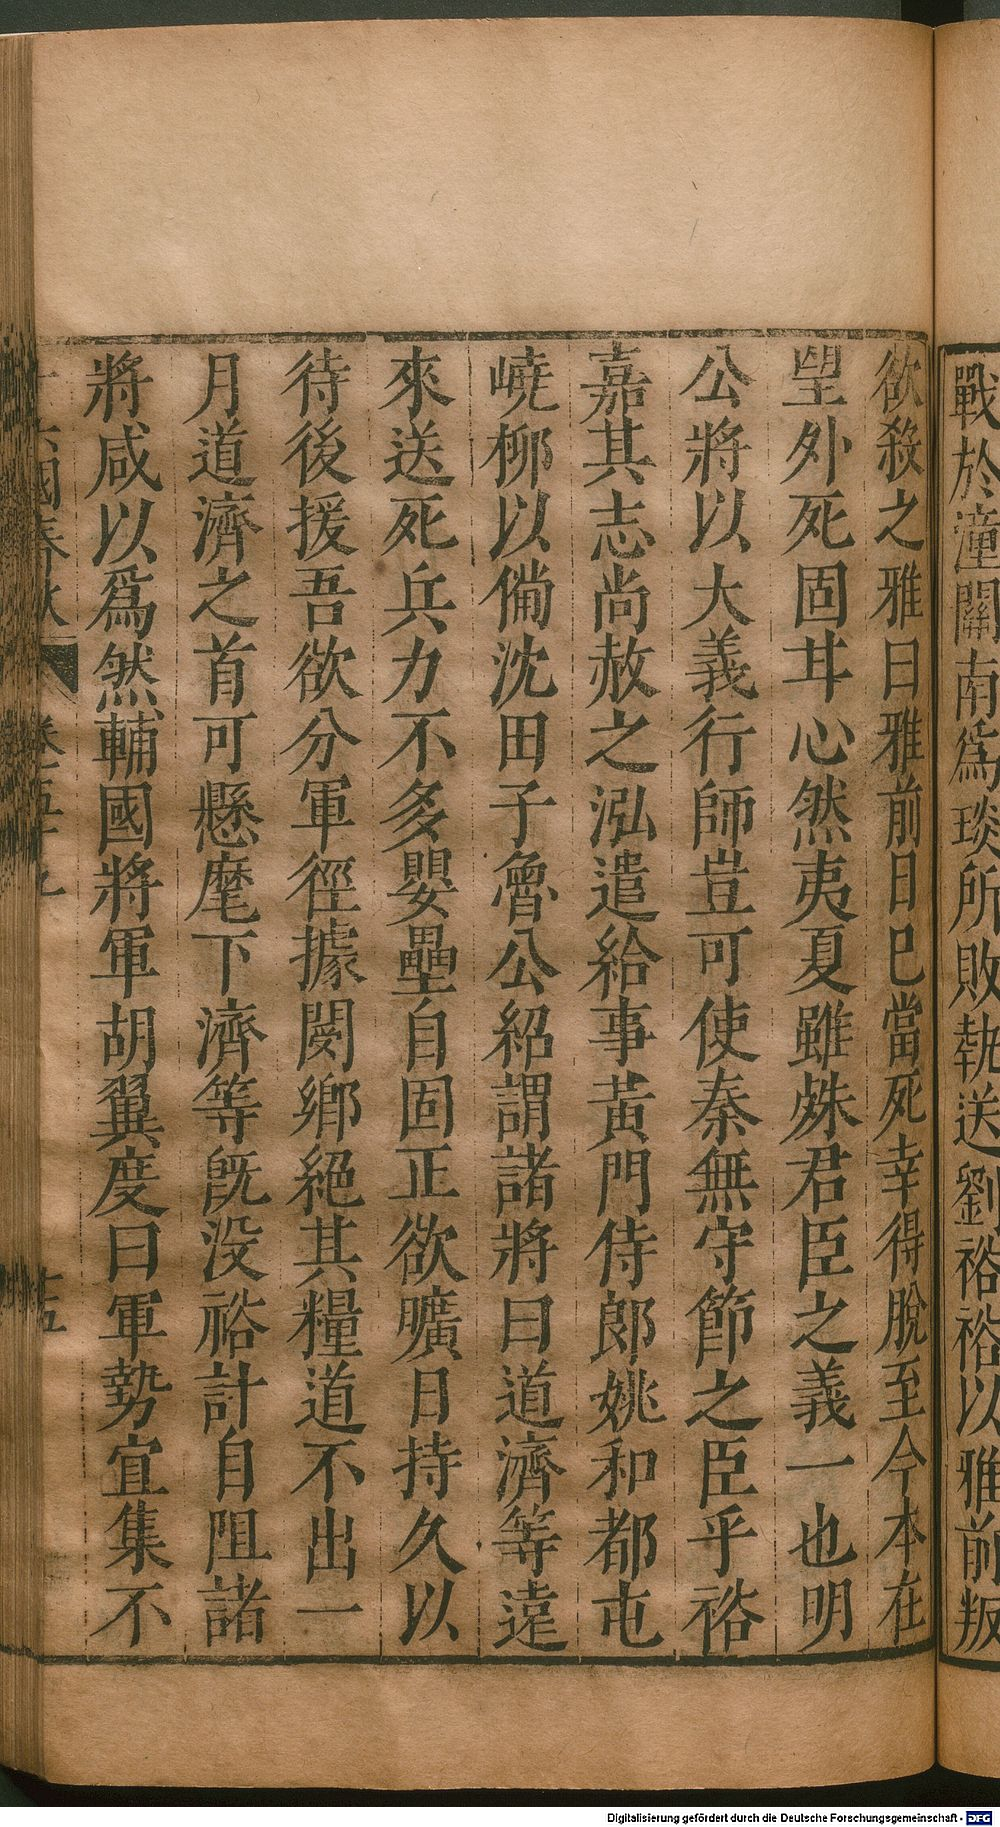 戰於潼關南爲琰所敗執送劉裕裕以雅前叛
欲殺之雅曰雅前日已當死幸得脫至今本在
望外死固甘心然夷夏雖殊君臣之義一也明
公將以大義行師豈可使秦無守節之臣乎裕
嘉其志尚赦之泓遣給事黃門侍郎姚和都屯
嶢柳以備沈田子魯公紹謂諸將曰道濟等遠
來送死兵力不多嬰壘自固正欲曠日持久以
待後援吾欲分軍徑據閿鄉絕其糧道不出一
月道濟之首可懸麾下濟等旣没裕計自阻諸
將咸以爲然輔國將軍胡翼度曰軍勢宜集不
十六國春秋 卷五十九 十五
Digitalisierung gefördert durch die Deutsche Forschungsgemeinschaft - DFG